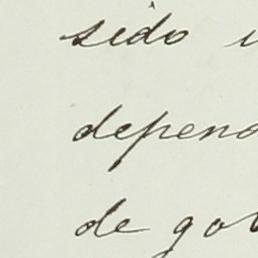 sido
depend
de go